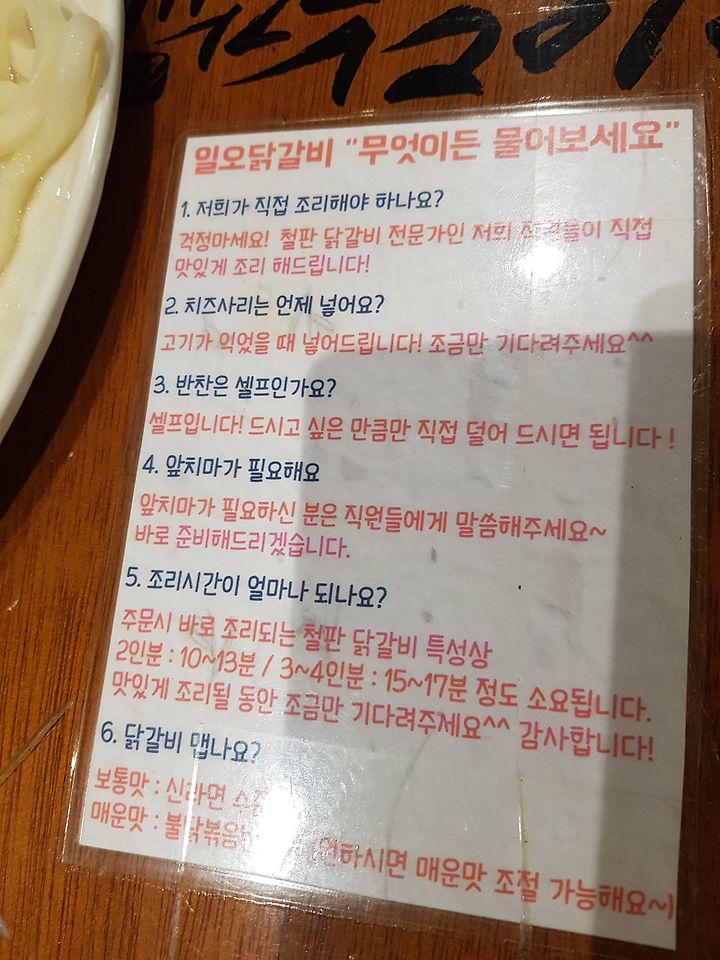 일오닭갈비 "무엇이든 물어보세요"
1. 저희가 직접 조리해야 하나요?
걱정마세요! 철판 닭갈비 전문가인 저희 직접
맛있게 조리 해드립니다!
2. 치즈사리는 언제 넣어요?
고기가 익었을 때 넣어드립니다! 조금만 기다려주세요^^
3. 반찬은 셀프인가요?
셀프입니다! 드시고 싶은 만큼만 직접 덜어 드시면 됩니다!
4. 앞치마가 필요해요
앞치마가 필요하신 분은 직원들에게 말씀해주세요~
바로 준비해드리겠습니다.
5. 조리시간이 얼마나 되나요?
주문시 바로 조리되는 철판 닭갈비 특성상
2인분 : 10~13분 / 3~4인분 : 15~17분 정도 소요됩니다.
맛있게 조리될 동안 조금만 기다려주세요^^ 감사합니다!
6. 닭갈비 맵나요?
보통맛 : 신라면
매운맛 : 매운맛 조절 가능해요~)